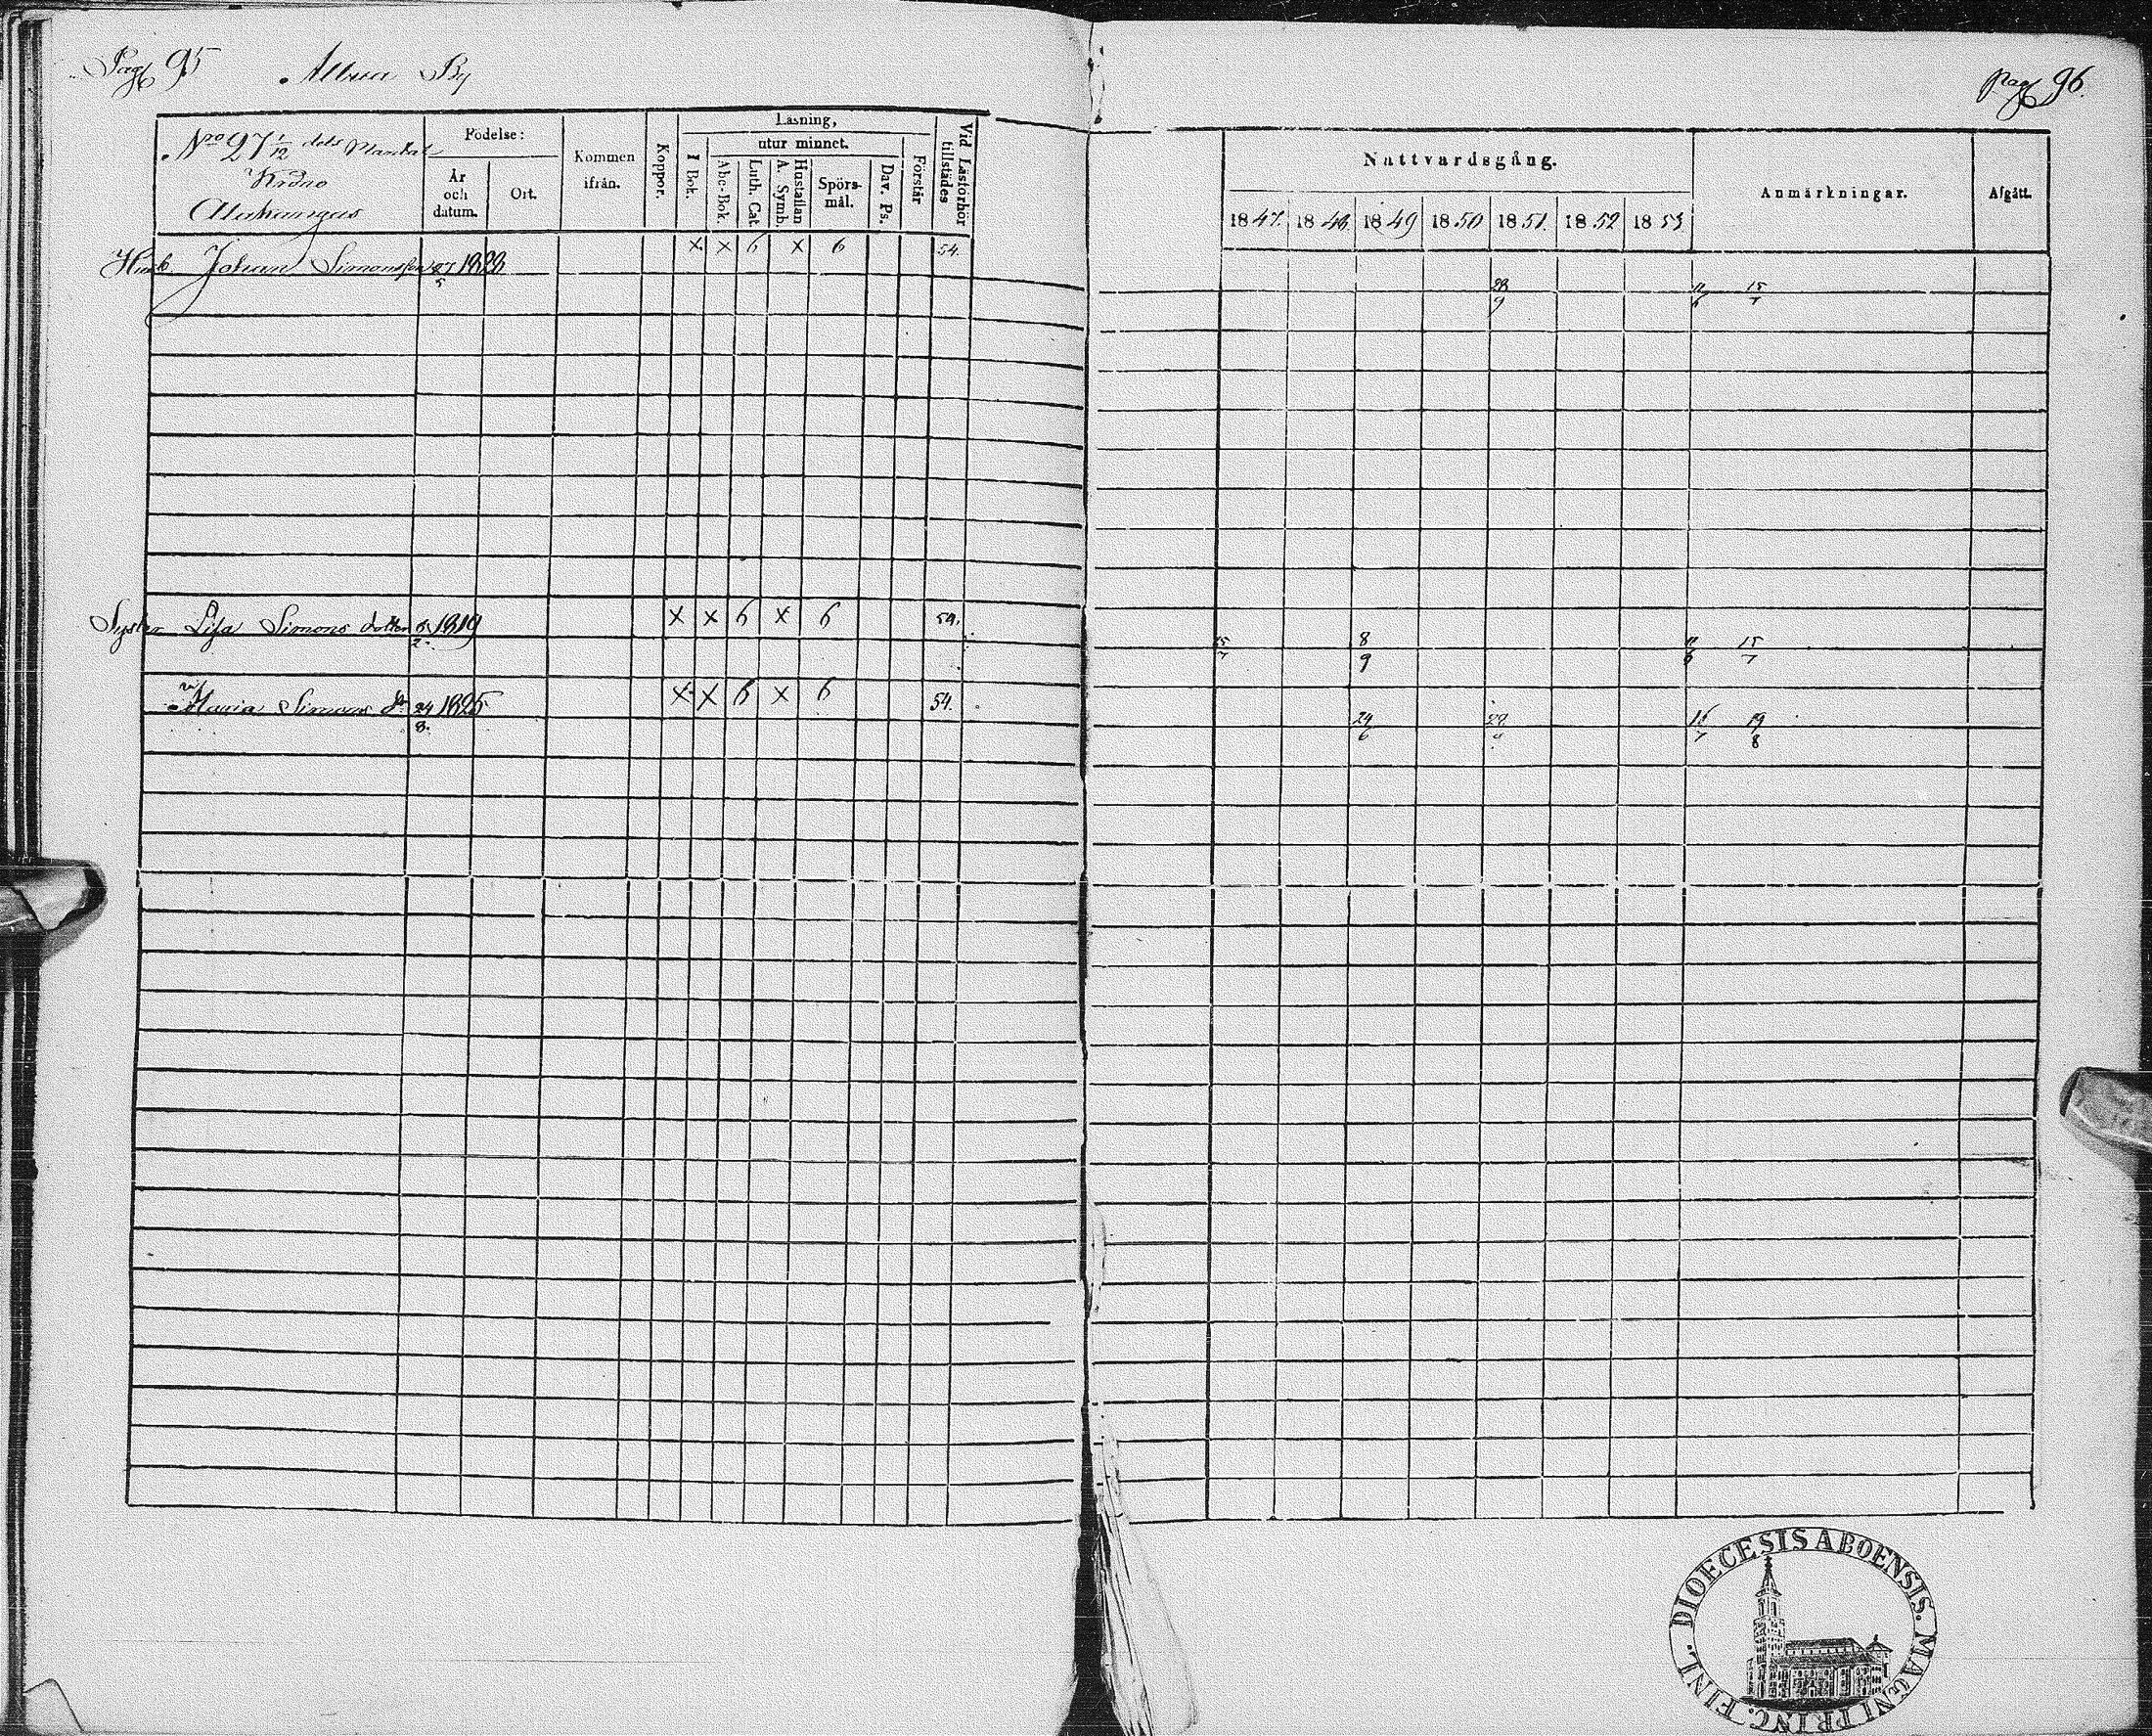 Pag 95 By
Pag 96.
No 27 1/12 dels Mantal
Krono
Födelse:
År och datum.
Ort.
Kommen ifrån.
Koppor.
Läsning,
I Bok.
utur minnet.
Abc-Bok.
Luth. Cat.
Hustaflan A. Symb.
Spörs-mål.
Dav. Ps.
Förstår
Vid Läsförhör tillstädes
Nattvardsgång.
1847. 1848. 1849 1850 1851. 1852 1853
Anmärkningar.
Afgått.
Johan Simonsson 27/5 1828 x x 6 x 6 54. 28/9 15/7
Syster Lisa Simons dotter 1819 x x 6 x 6 54. 15/7 8/9 15/7
Maria Simons dr 24/8. 1825 x x 6 x 6 54. 24/6 19/8
DIOECESIS ABOENSIS. MAGNI PRINC. FINL.